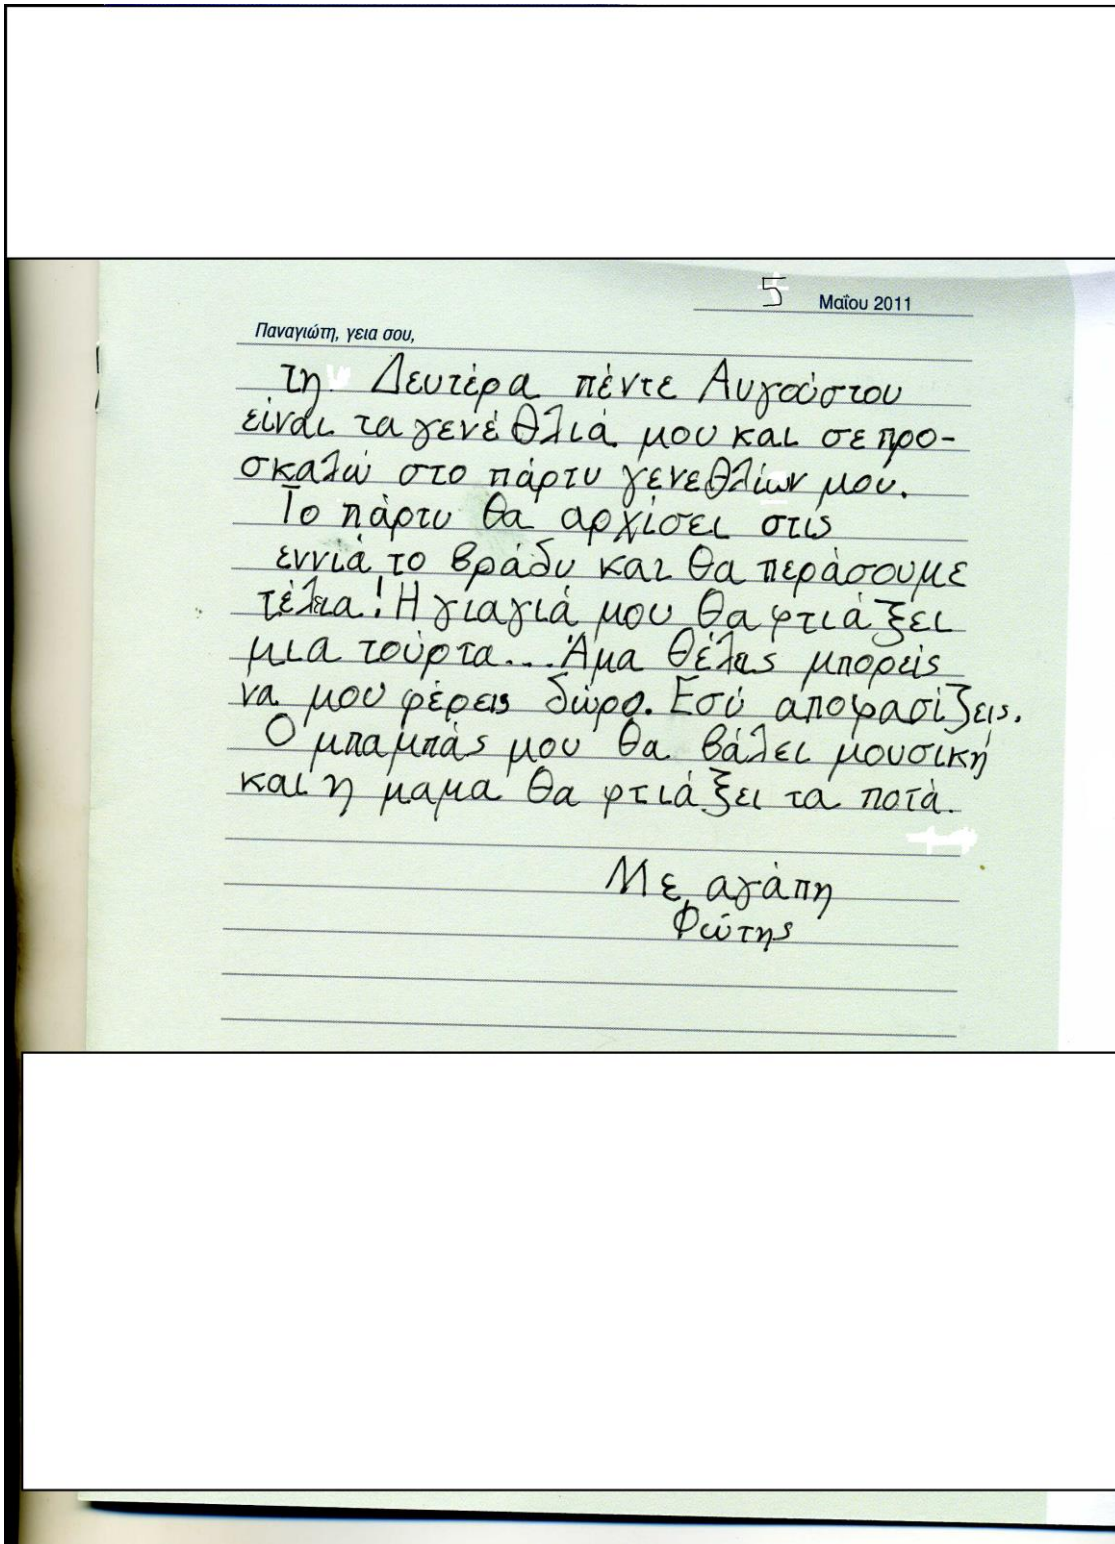 5 Μαΐου 2011
Παναγιώτη, γεια σου,
τη Δευτέρα πέντε Αυγούστου
είναι τα γενέθλιά μου και σε προ-
σκαλώ στο πάρτυ γενεθλίων μου.
Το πάρτυ θα αρχίσει στις
εννιά το βράδυ και θα περάσουμε
τέλεια! Η γιαγιά μου θα φτιάξει
μια τούρτα... Άμα θέλεις μπορείς
να μου φέρεις δώρο. Εσύ αποφασίζεις.
Ο μπαμπάς μου θα βάλει μουσική
και η μαμα θα φτιάξει τα ποτά.
Με αγάπη
Φώτης